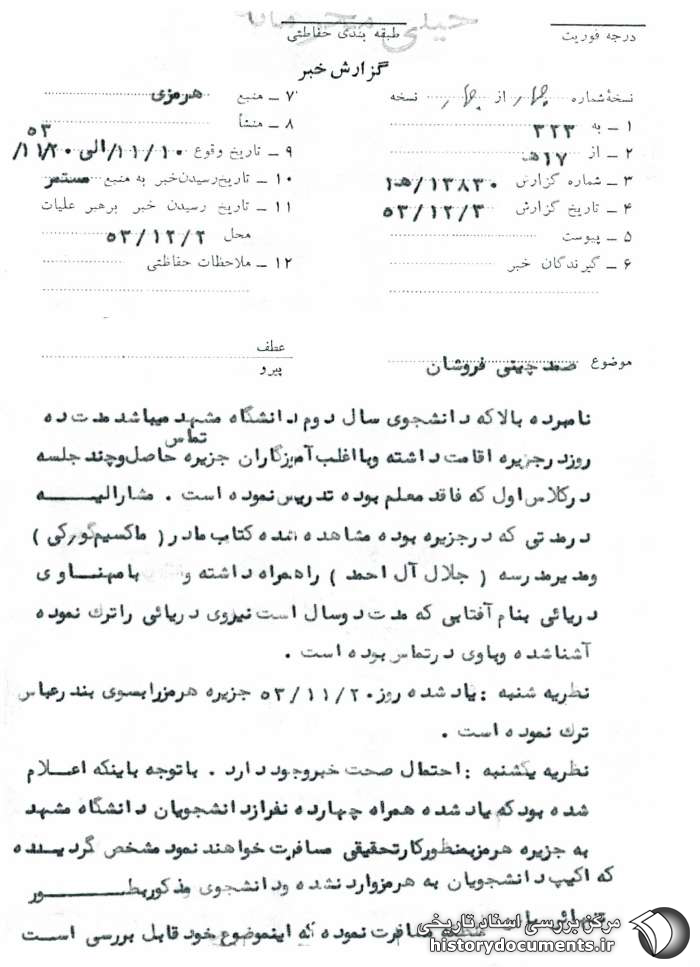 خیلی محرمانه
درجه فوریت
طبقه بندی حفاظتی
گزارش خبر
نسخهٔ شماره چهار از چهار نسخه
۱ ـ به ۳۲۳
۲ ـ از ۱۷ه
۳ ـ شماره گزارش ۱۳۸۳۰/ه۱
۴ ـ تاریخ گزارش ۵۳/۱۲/۳
۵ ـ پیوست
۶ ـ گیرندگان خبر
۷ ـ منبع هرمزی
۸ ـ منشأ
۹ ـ تاریخ وقوع ۱۱/۱۰/ الی ۵۳/۱۱/۲۰
۱۰ ـ تاریخ رسیدن خبر به منبع مستمر
۱۱ ـ تاریخ رسیدن خبر برهبر عملیات
محل ۵۳/۱۲/۲
۱۲ ـ ملاحظات حفاظتی
عطف
پیرو
موضوع صمد چینی فروشان
نامبرده بالا که دانشجوی سال دوم دانشگاه مشهد میباشد مدت ده
روز در جزیره اقامت داشته و با اغلب آموزگاران جزیره تماس حاصل و چند جلسه
در کلاس اول که فاقد معلم بوده تدریس نموده است . مشارالیه
در مدتی که در جزیره بوده مشاهده شده کتاب مادر ( ماکسیم گورکی )
و مدیر مدرسه ( جلال آل احمد ) را همراه داشته و با مهناوی
دریائی بنام آفتابی که مدت دو سال است نیروی دریائی را ترک نموده
آشنا شده و با وی در تماس بوده است .
نظریه شنبه : یاد شده روز ۵۳/۱۱/۲۰ جزیره هرمز را بسوی بندرعباس
ترک نموده است .
نظریه یکشنبه : احتمال صحت خبر وجود دارد . با توجه باینکه اعلام
شده بود که یاد شده همراه چهارده نفر از دانشجویان دانشگاه مشهد
به جزیره هرمز بمنظور کار تحقیقی مسافرت خواهند نمود مشخص گردیده
که اکیپ دانشجویان به هرمز وارد نشده و دانشجوی مذکور بطور
مسافرت نموده که اینموضوع خود قابل بررسی است
مرکز بررسی اسناد تاریخی
historydocuments.ir